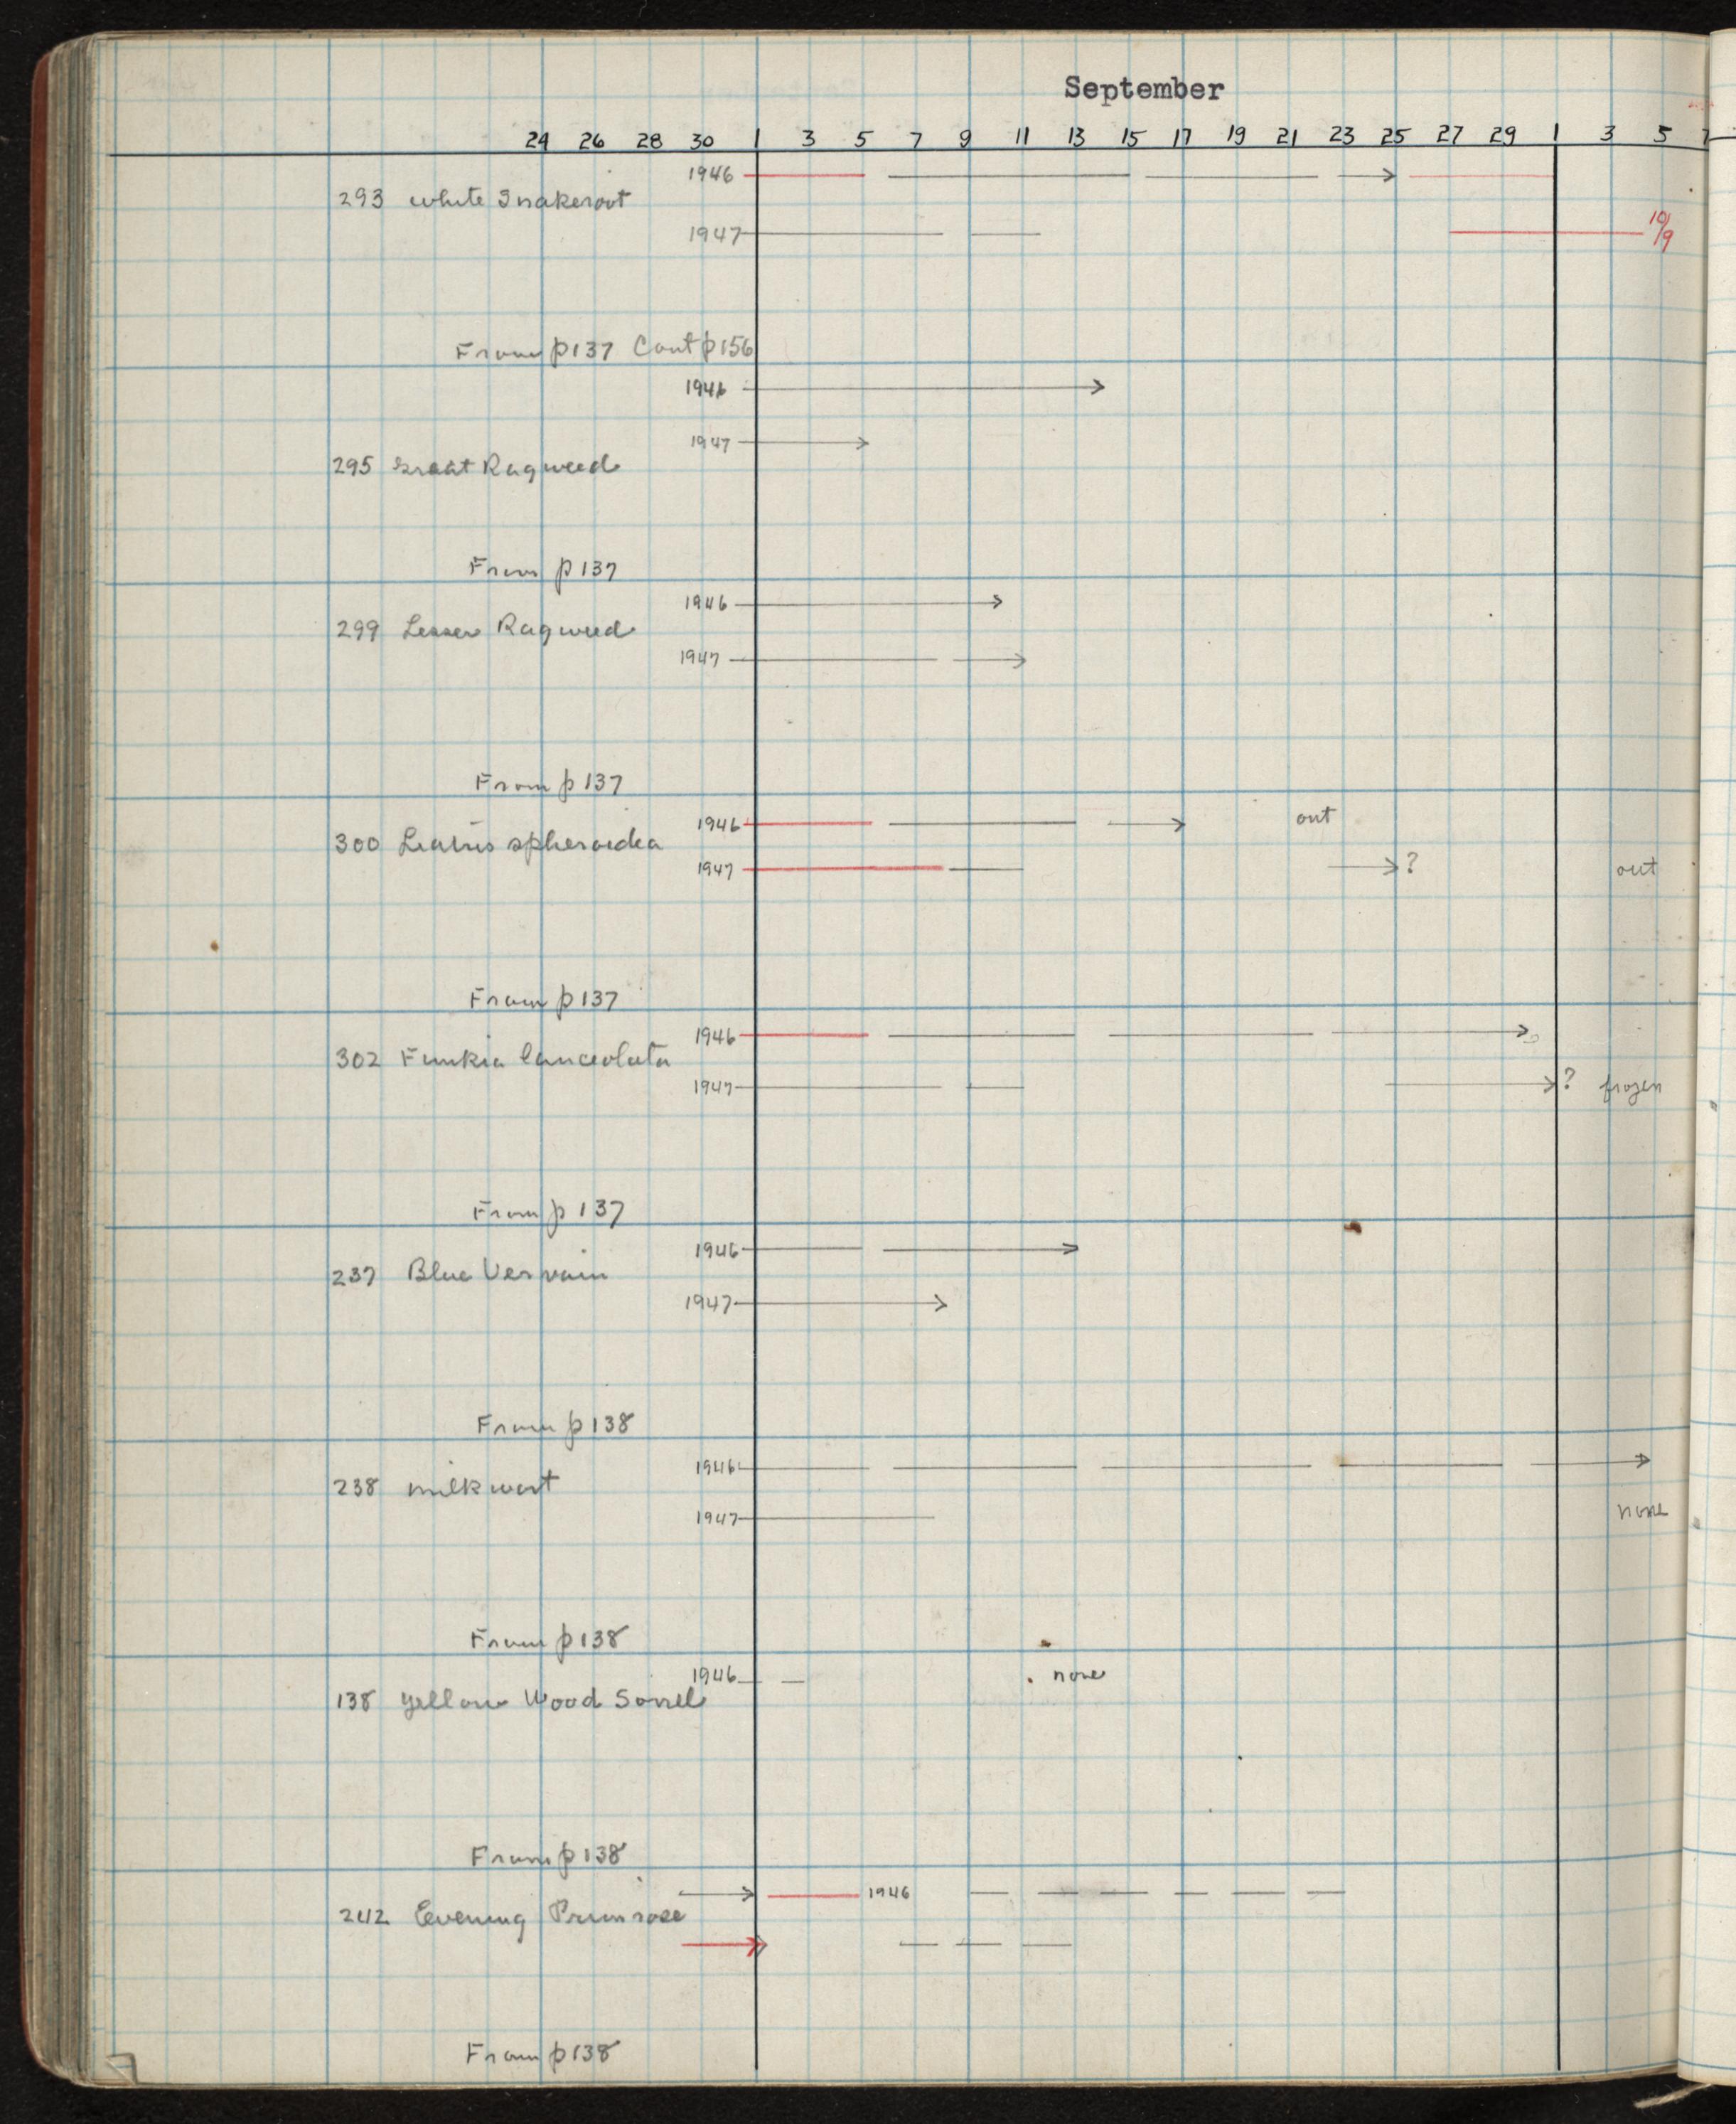 September
24 26 28 30 1 3 5 7 9 11 13 15 17 19 21 23 25 27 29 1 3 5 7
1946
293 White Snakeroot
1947 10/9
From p137 Cont p156
1946
1947
295 Great Ragweed
From p 137
1946
299 Lesser Ragweed
1947
From p 137
1946 out
300 Liatris spheroidea
1947 ? out
From p 137
1946
302 Funkia lanceolata
1947 ? frozen
From p 137
1946
237 Blue Vervain
1947
From p 138
1946
238 milkwort
1947 none
From p 138
1946 none
138 Yellow Wood Sorrel
From p 138
1946
242 Evening Primrose
From p 138